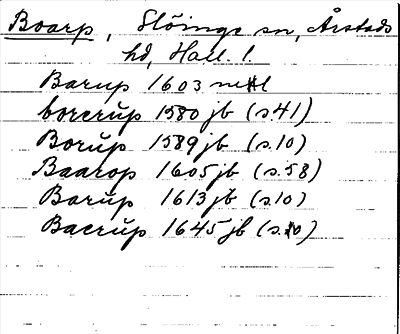 Boarp, Slöinge sn, Årstads
hd, Hall. l.
Barup 1603
borerŭp 1580 jb (s.41)
Borŭp 1589 jb (s.10)
Baarop 1605 jb (s.58)
Barŭp 1613 jb (s.10)
Bacrŭp 1645 jb (s.10)